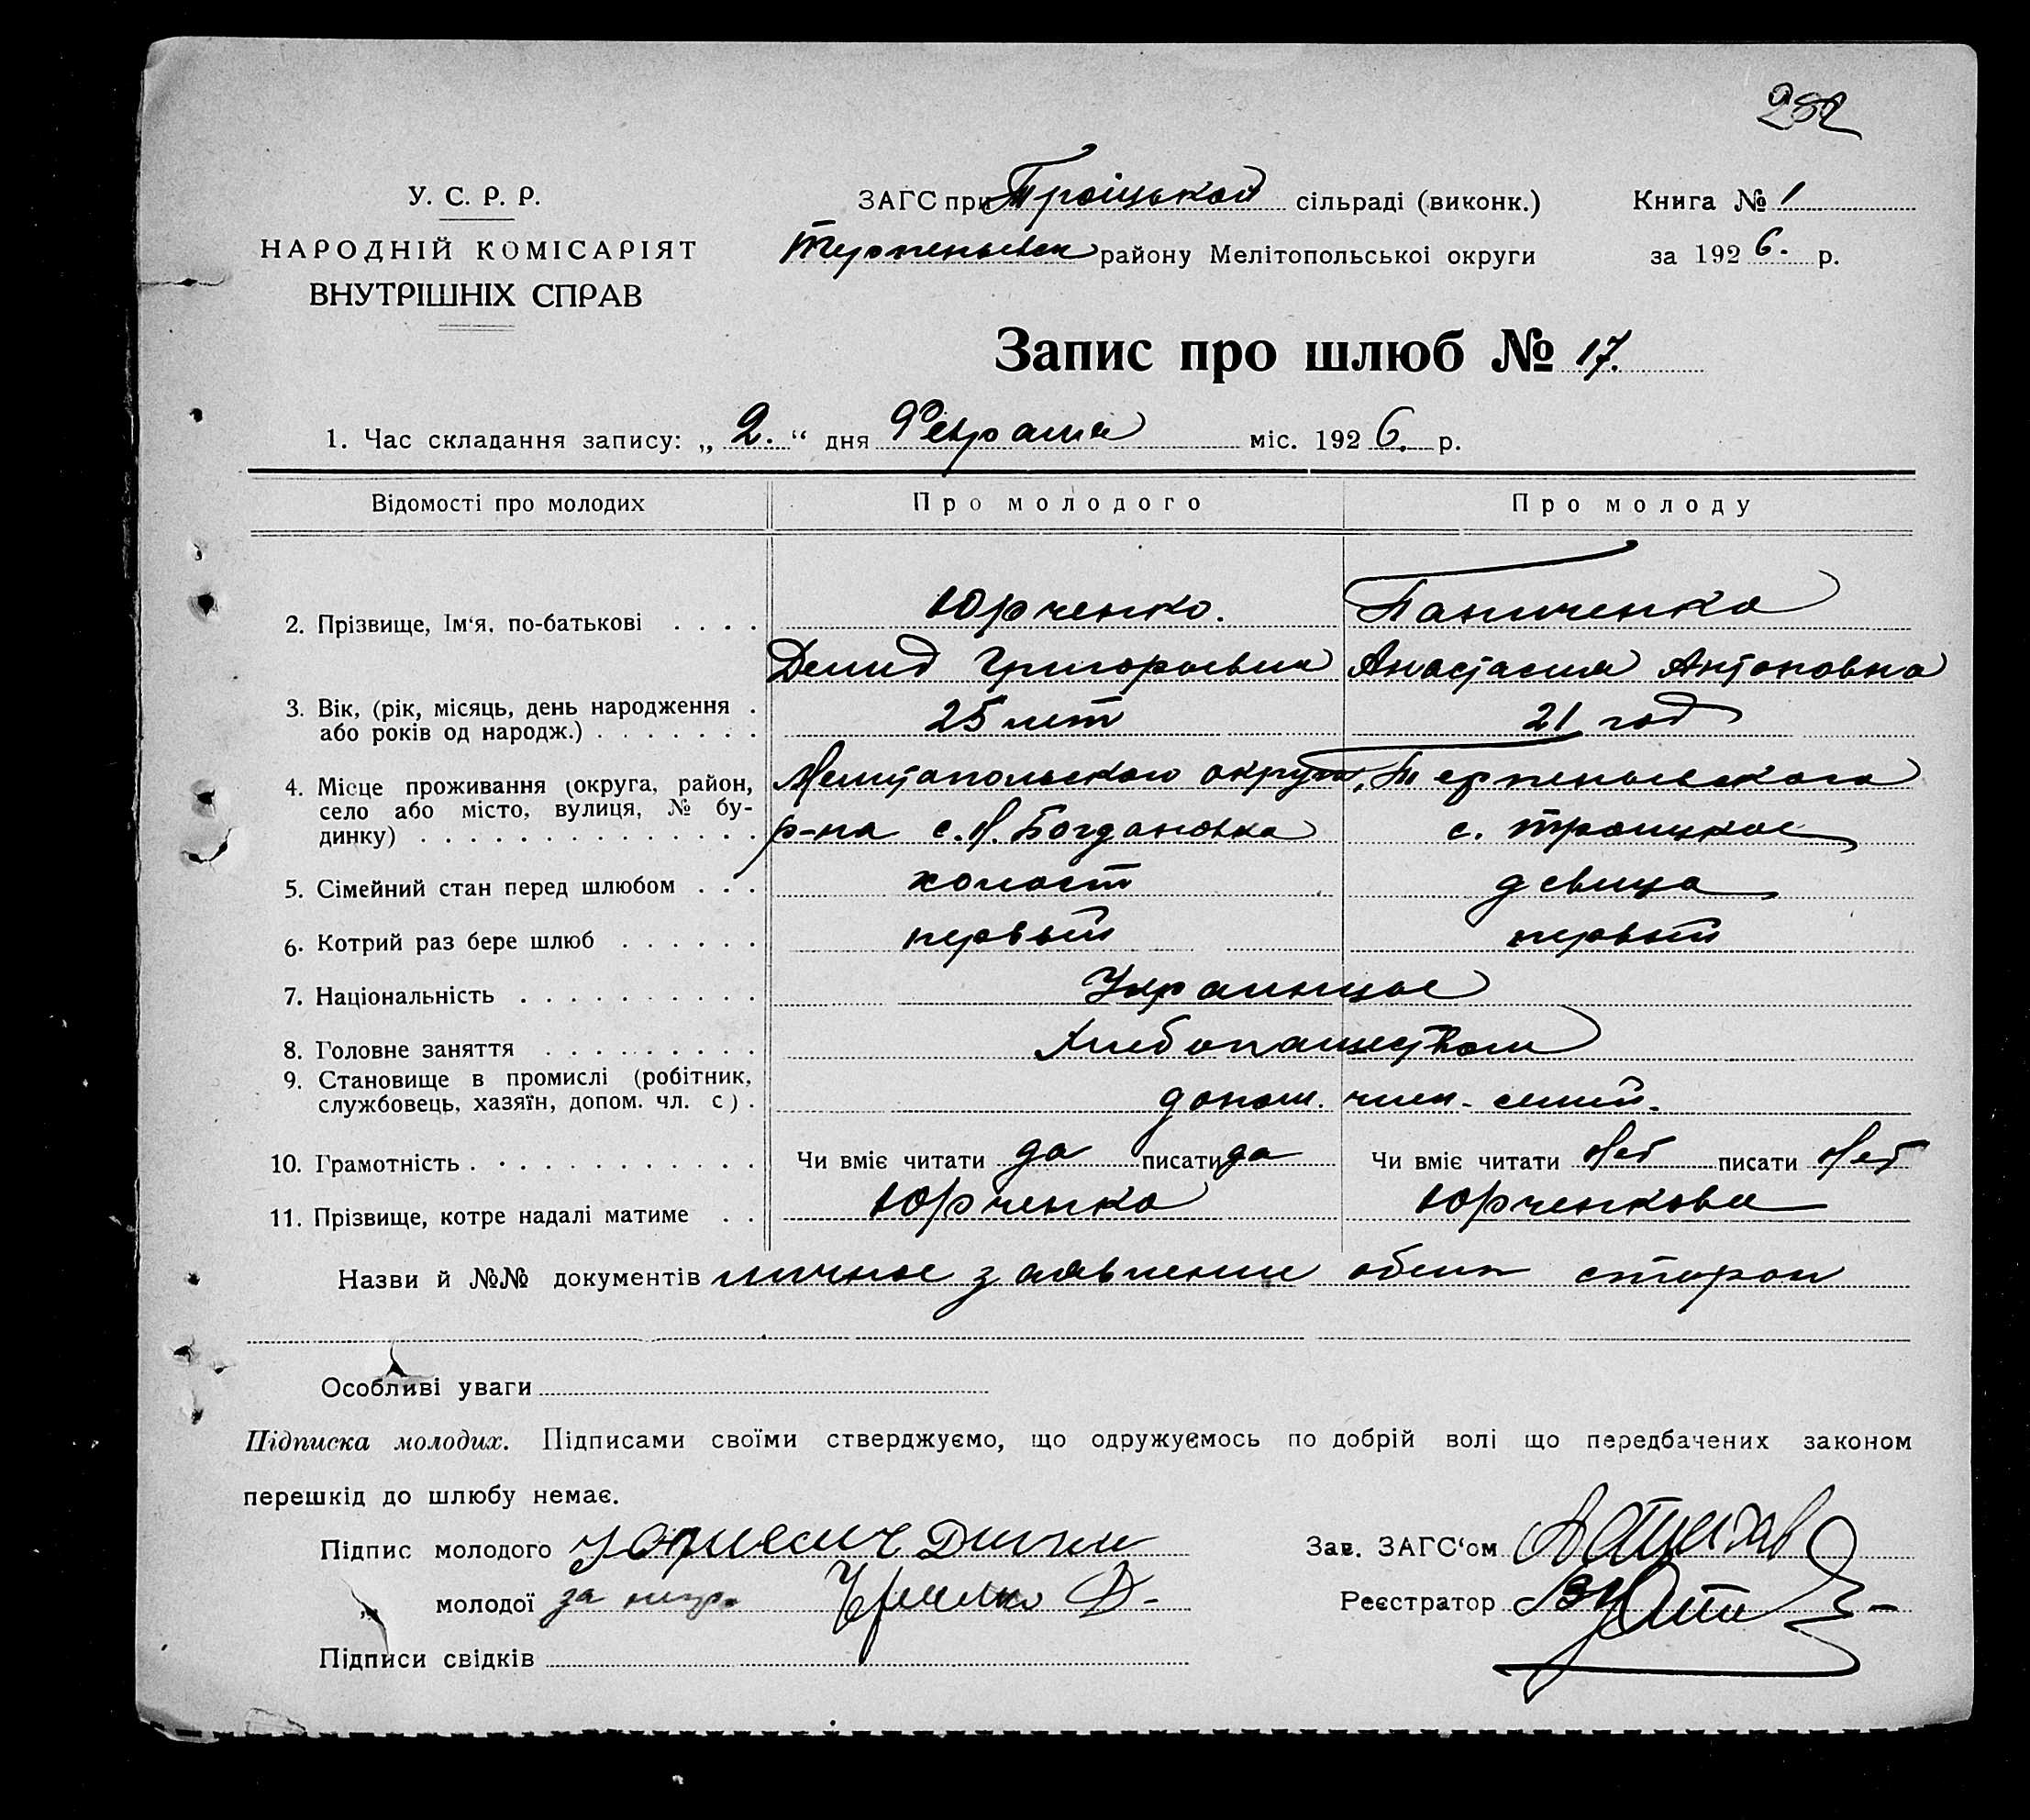 282
У. С. Р. Р.
НАРОДНІЙ КОМІСАРІЯТ
ВНУТРІШНІХ СПРАВ
ЗАГС при Троіцькой сільраді (виконк.) Книга № 1
Терпеньевск району Мелітопольськоі округи за 1926. р.
Запис про шлюб № 17.
1. Час складання запису: „2.“ дня Февраля міс. 1926. р.
Відомості про молодих Про молодого Про молоду
2. Прізвище, Ім‘я, по-батькові . . . . Юрченко. Паниченко
Демид Григорьевич Анастасия Антоновна
3. Вік, (рік, місяць, день народження . 25 лет 21 год
або років од народж.) . . . . . . .
4. Місце проживання (округа, район, Мелитопольского округа, Терпеньевского
село або місто, вулиця, № бу-
динку) . . . . . . . . . . . . . . р-на с. Н. Богдановка с. Троицкое
5. Сімейний стан перед шлюбом . . . холост девица
6. Котрий раз бере шлюб . . . . . . первый первый
7. Національність . . . . . . . . . . Украинцы
8. Головне заняття . . . . . . . . . Хлебопашеством
9. Становище в промислі (робітник,
службовець, хазяїн, допом. чл. с) . допом. член. семьи.
10. Грамотність . . . . . . . . . . . . Чи вміє читати да писати да Чи вміє читати Нет писати Нет
11. Прізвище, котре надалі матиме . . Юрченко Юрченкова
Назви й №№ документів личное заявление обеих сторон
Особливі уваги
Підписка молодих. Підписами своїми стверджуємо, що одружуємось по добрій волі що передбачених законом
перешкід до шлюбу немає.
Підпис молодого Зав. ЗАГС‘ом
молодої за негр. Реєстратор
Підписи свідків